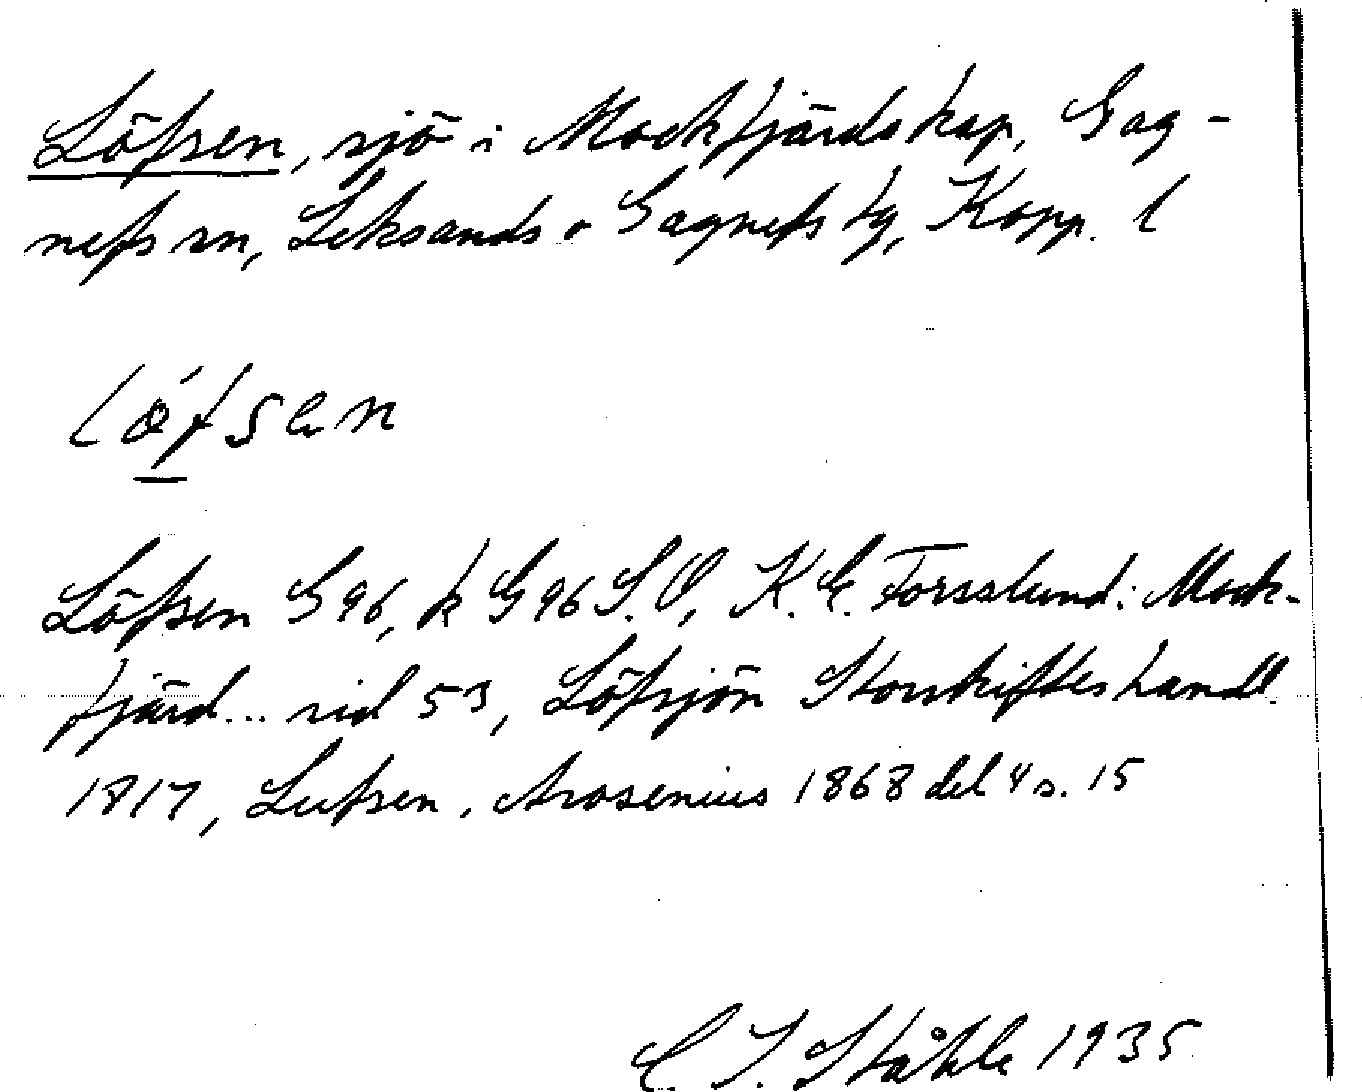 Löfsen, sjö i Mockfjärds kap, Gag-
nefs sn, Leksands o Gagnefs tg, Kopp. l
löfsen
Löfsen G 96, k G 96 S.O, K.E. Forsslund: Mock-
fjärd... sid 53, Löfsjön Storskifteshandl.
1817, Lufsen, Arosenius 1868 del 4 s. 15
C I Ståhle 1935